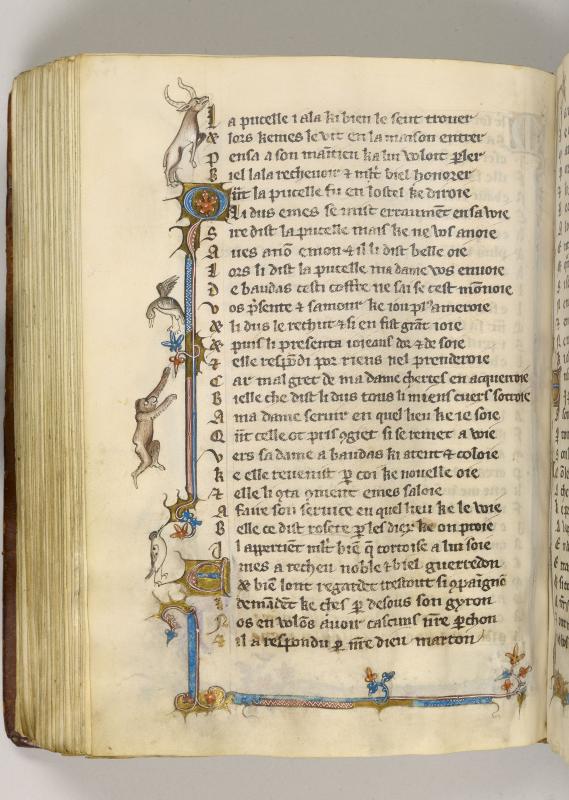 L a pucelle i ala ki bien le seut trouer
& lors kemes le vit en la maison entrer
P ensa a son maintien ka lui voloit parler
B iel lala recheuoir & mlt biel honorer
Q nt la pucelle fu en lostel ke diroie
Li dus emes se mist erraument en sa voie
S ire dist la pucelle mais ke ne vos anoie
A ues amo emon & il li dist belle oie
L ors li dist la pucelle ma dame vos enuoie
D e baudas cesti coffre ne sai se cest monnoie
V os psente & samour ke iou pl ameroie
& li dus le rechut & si en fist grant ioie
& puis li presenta ioieaus dor & de soie
& elle respondi por riens nel prenderoie
C ar malgret de ma dame chertes en acquerroie
B ielle che dist li dus tous li miens cuers sotroie
A ma dame seruir en quel lieu ke ie soie
Q nt celle ot pris 9giet si se remet a voie
V ers sa dame a baudas ki atent & coloie
K e elle reuenist p coi ke nouelle oie
& elle li 9ta 9ment emes saloie
A faire son seruice en quel lieu ke le voie
B elle ce dist rosete p les diex ke on proie
I l appertient mlt bien q cortoise a lui soie
E mes a recheu noble & biel guerredon
de bien lont regardet trestout si 9paignon
demandet ke chest p desous son gyron
N os en volons auoir cascuns nre pchon
& il a respondu p nre dieu marton